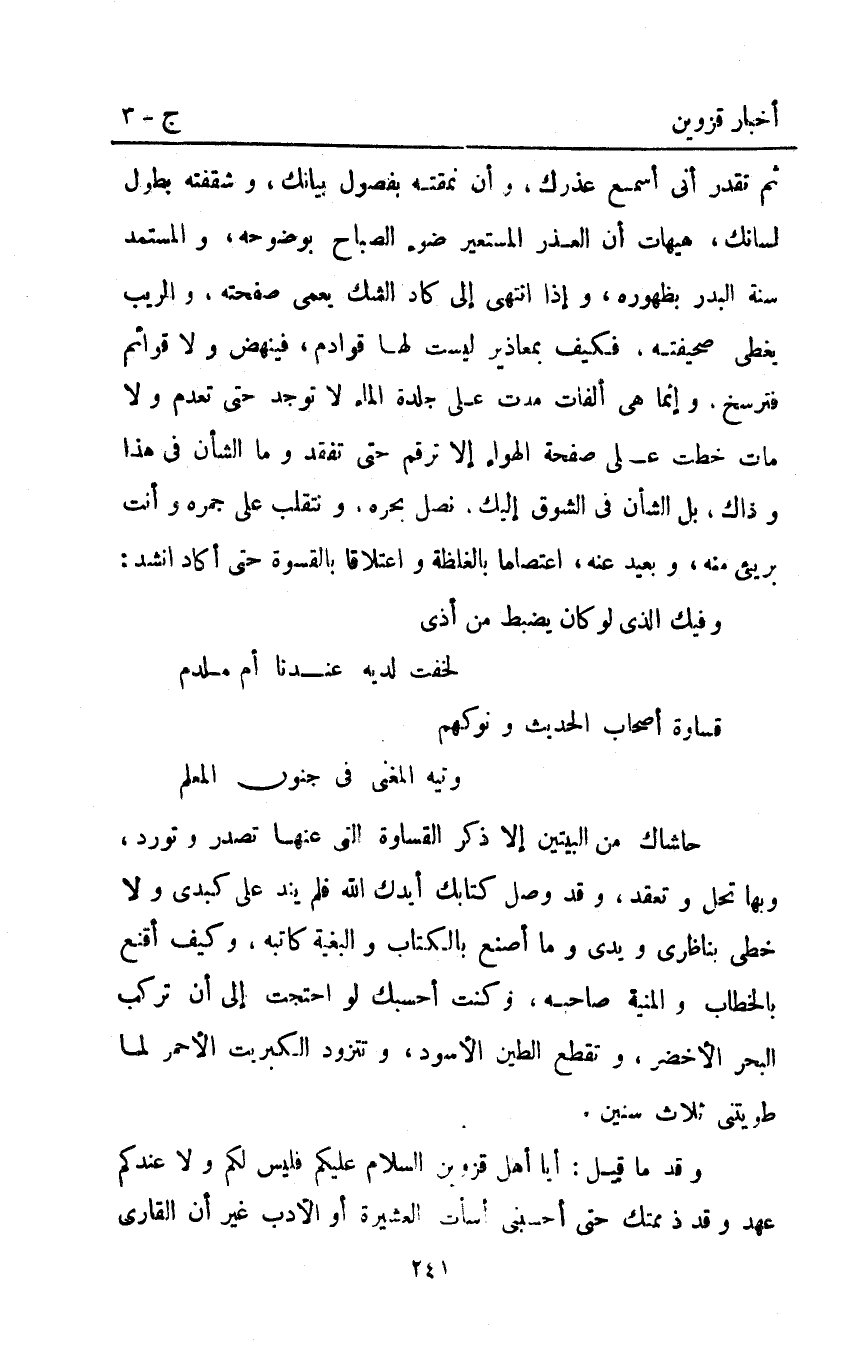 أخبار قزوين ج - ٣
ثم تقدر أنى أسمع عذرك، و أن نمقته بفصول بيانك، و شقفته بطول
لسانك، هيهات أن العذر المستعير ضوء الصباح بوضوحه، و المستمد
سنة البدر بظهوره، و إذا انتهى إلى كاد الشك يعمى صفحته، و الريب
يغطى صحيفته، فكيف بمعاذير ليست لها قوادم، فينهض و لا قوائم
فترسخ. و إنما هى ألفات مدت على جلدة الماء لا توجد حتى تعدم و لا
مات خطت على صفحة الهواء إلا ترقم حتى تفقد و ما الشأن فى هذا
و ذاك، بل الشأن فى الشوق إليك. نصل بحره. و نتقلب على جمره و أنت
بريئ منه، و بعيد عنه، اعتصاما بالغلظة و اعتلاقا بالقسوة حتى أكاد انشد:
و فيك الذى لو كان يضبط من أذى
لخفت لديه عندنا أم ملدم
قساوة أصحاب الحديث و نوكهم
وتيه المغنى فى جنون المعلم
حاشاك من البيتين إلا ذكر القساوة التى عنها تصدر و تورد،
وبها تحل و تعقد، و قد وصل كتابك أيدك الله فلم يند على كبدى و لا
خطى بناظرى و يدى و ما أصنع بالكتاب و البغية كاتبه، و كيف أقنع
بالخطاب و المنية صاحبه، و كنت أحسبك لو احتجت إلى أن تركب
البحر الأخضر، و تقطع الطين الأسود، و تتزود الكبريت الأحمر لما
طويتنى ثلاث سنين.
و قد ما قيل: أيا أهل قزوين السلام عليكم فليس لكم و لا عندكم
عهد و قد ذممتك حتى أحسبنى أسأت العشيرة أو الأدب غير أن القارى
٢٤١